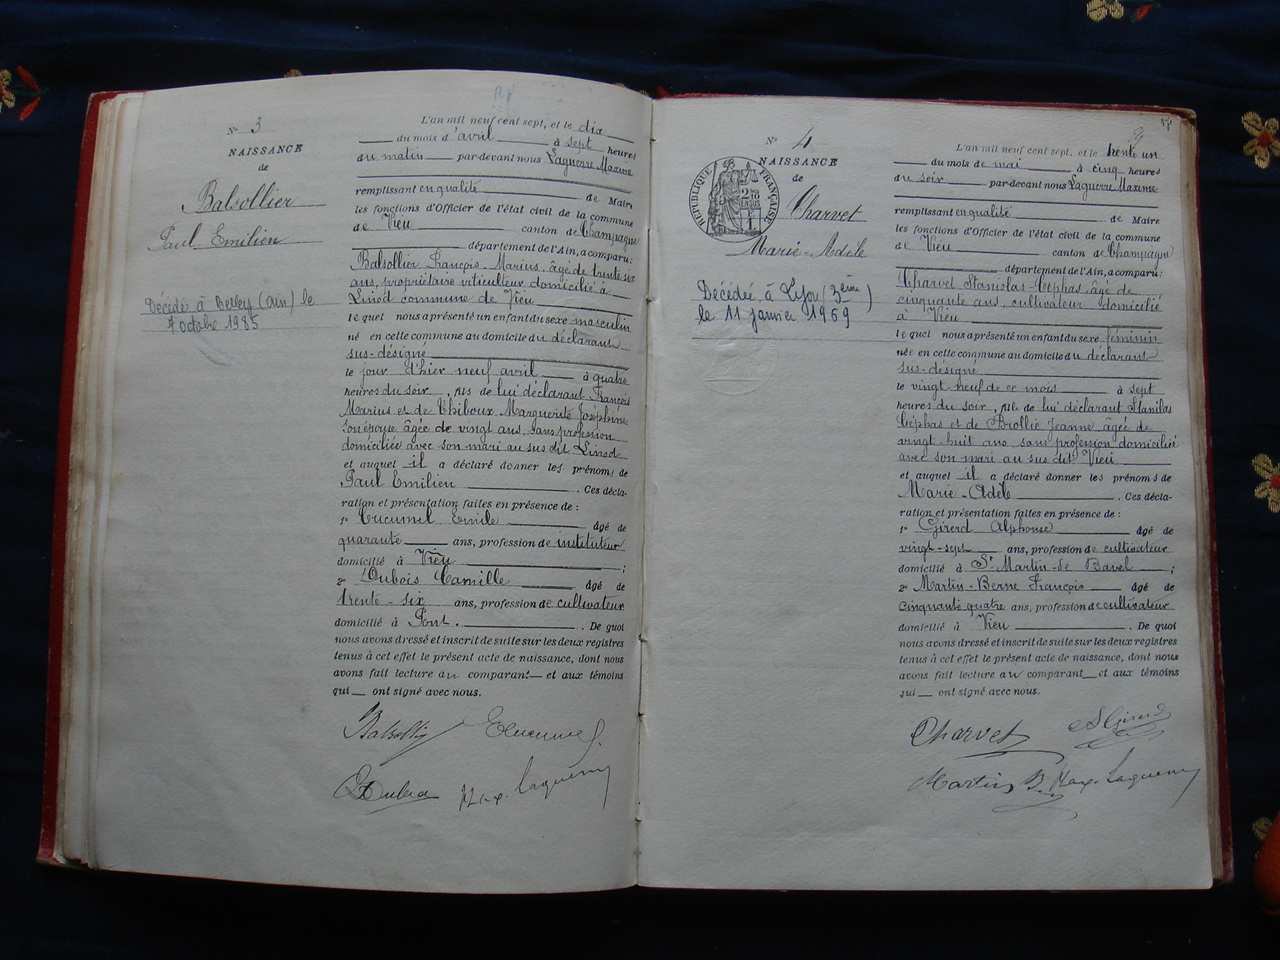 N° 3
NAISSANCE
de
Balsollier
Paul Emilien
Décédé à Belley (Ain) le
7 octobre 1985
L'an mil neuf cent sept, et le dix
du mois d'avril à sept heures
du matin par-devant nous Laguerre Maxime
remplissant en qualité de Maire
les fonctions d'Officier de l'état civil de la commune
de Vieu canton de Champagne
département de l'Ain, a comparu:
Balsollier François-Marius, âgé de trente six
ans, propriétaire viticulteur domicilié à
Linod commune de Vieu
lequel nous a présenté un enfant du sexe masculin
né en cette commune au domicile du déclarant
sus-désigné
le jour d'hier neuf avril à quatre
heures du soir, fils de lui déclarant François
Marius et de Thiboux Marguerite Joséphine
son épouse âgée de vingt ans, sans profession
domiciliée avec son mari au sus dit Linod
et auquel il a déclaré donner les prénoms de
Paul Emilien. Ces décla-
ration et présentation faites en présence de:
1° Cucumel Emile âgé de
quarante ans, profession de instituteur
domicilié à Vieu;
2° Dubois Camille âgé de
trente-six ans, profession de cultivateur
domicilié à Pont. De quoi
nous avons dressé et inscrit de suite sur les deux registres
tenus à cet effet le présent acte de naissance, dont nous
avons fait lecture au comparant et aux témoins
qui ont signé avec nous.
Balsollier ECucumel
Max. Laguerre
N° 4
NAISSANCE
de
Charvet
Marie-Adèle
RÉPUBLIQUE FRANÇAISE
Décédée à Lyon (3ème)
le 11 janvier 1969
L'an mil neuf cent sept, et le trente un
du mois de mai à cinq heures
du soir par-devant nous Laguerre Maxime
remplissant en qualité de Maire
les fonctions d'Officier de l'état civil de la commune
de Vieu canton de Champagne
département de l'Ain, a comparu:
Charvet Stanislas-Cephas âgé de
cinquante ans, cultivateur domicilié
à Vieu
lequel nous a présenté un enfant du sexe féminin
née en cette commune au domicile du déclarant
sus-désigné
le vingt neuf de ce mois à sept
heures du soir, fille de lui déclarant Stanislas
Cephas et de Brollie Jeanne âgée de
vingt huit ans sans profession domiciliée
avec son mari au sus dit Vieu
et auquel il a déclaré donner les prénoms de
Marie-Adèle. Ces décla-
ration et présentation faites en présence de:
1° Girerd Alphonse âgé de
vingt-sept ans, profession de cultivateur
domicilié à St Martin-de Bavel;
2° Martin-Berne François âgé de
cinquante quatre ans, profession de cultivateur
domicilié à Vieu. De quoi
nous avons dressé et inscrit de suite sur les deux registres
tenus à cet effet le présent acte de naissance, dont nous
avons fait lecture au comparant et aux témoins
qui ont signé avec nous.
Charvet AGirerd
Martin B. Max. Laguerre